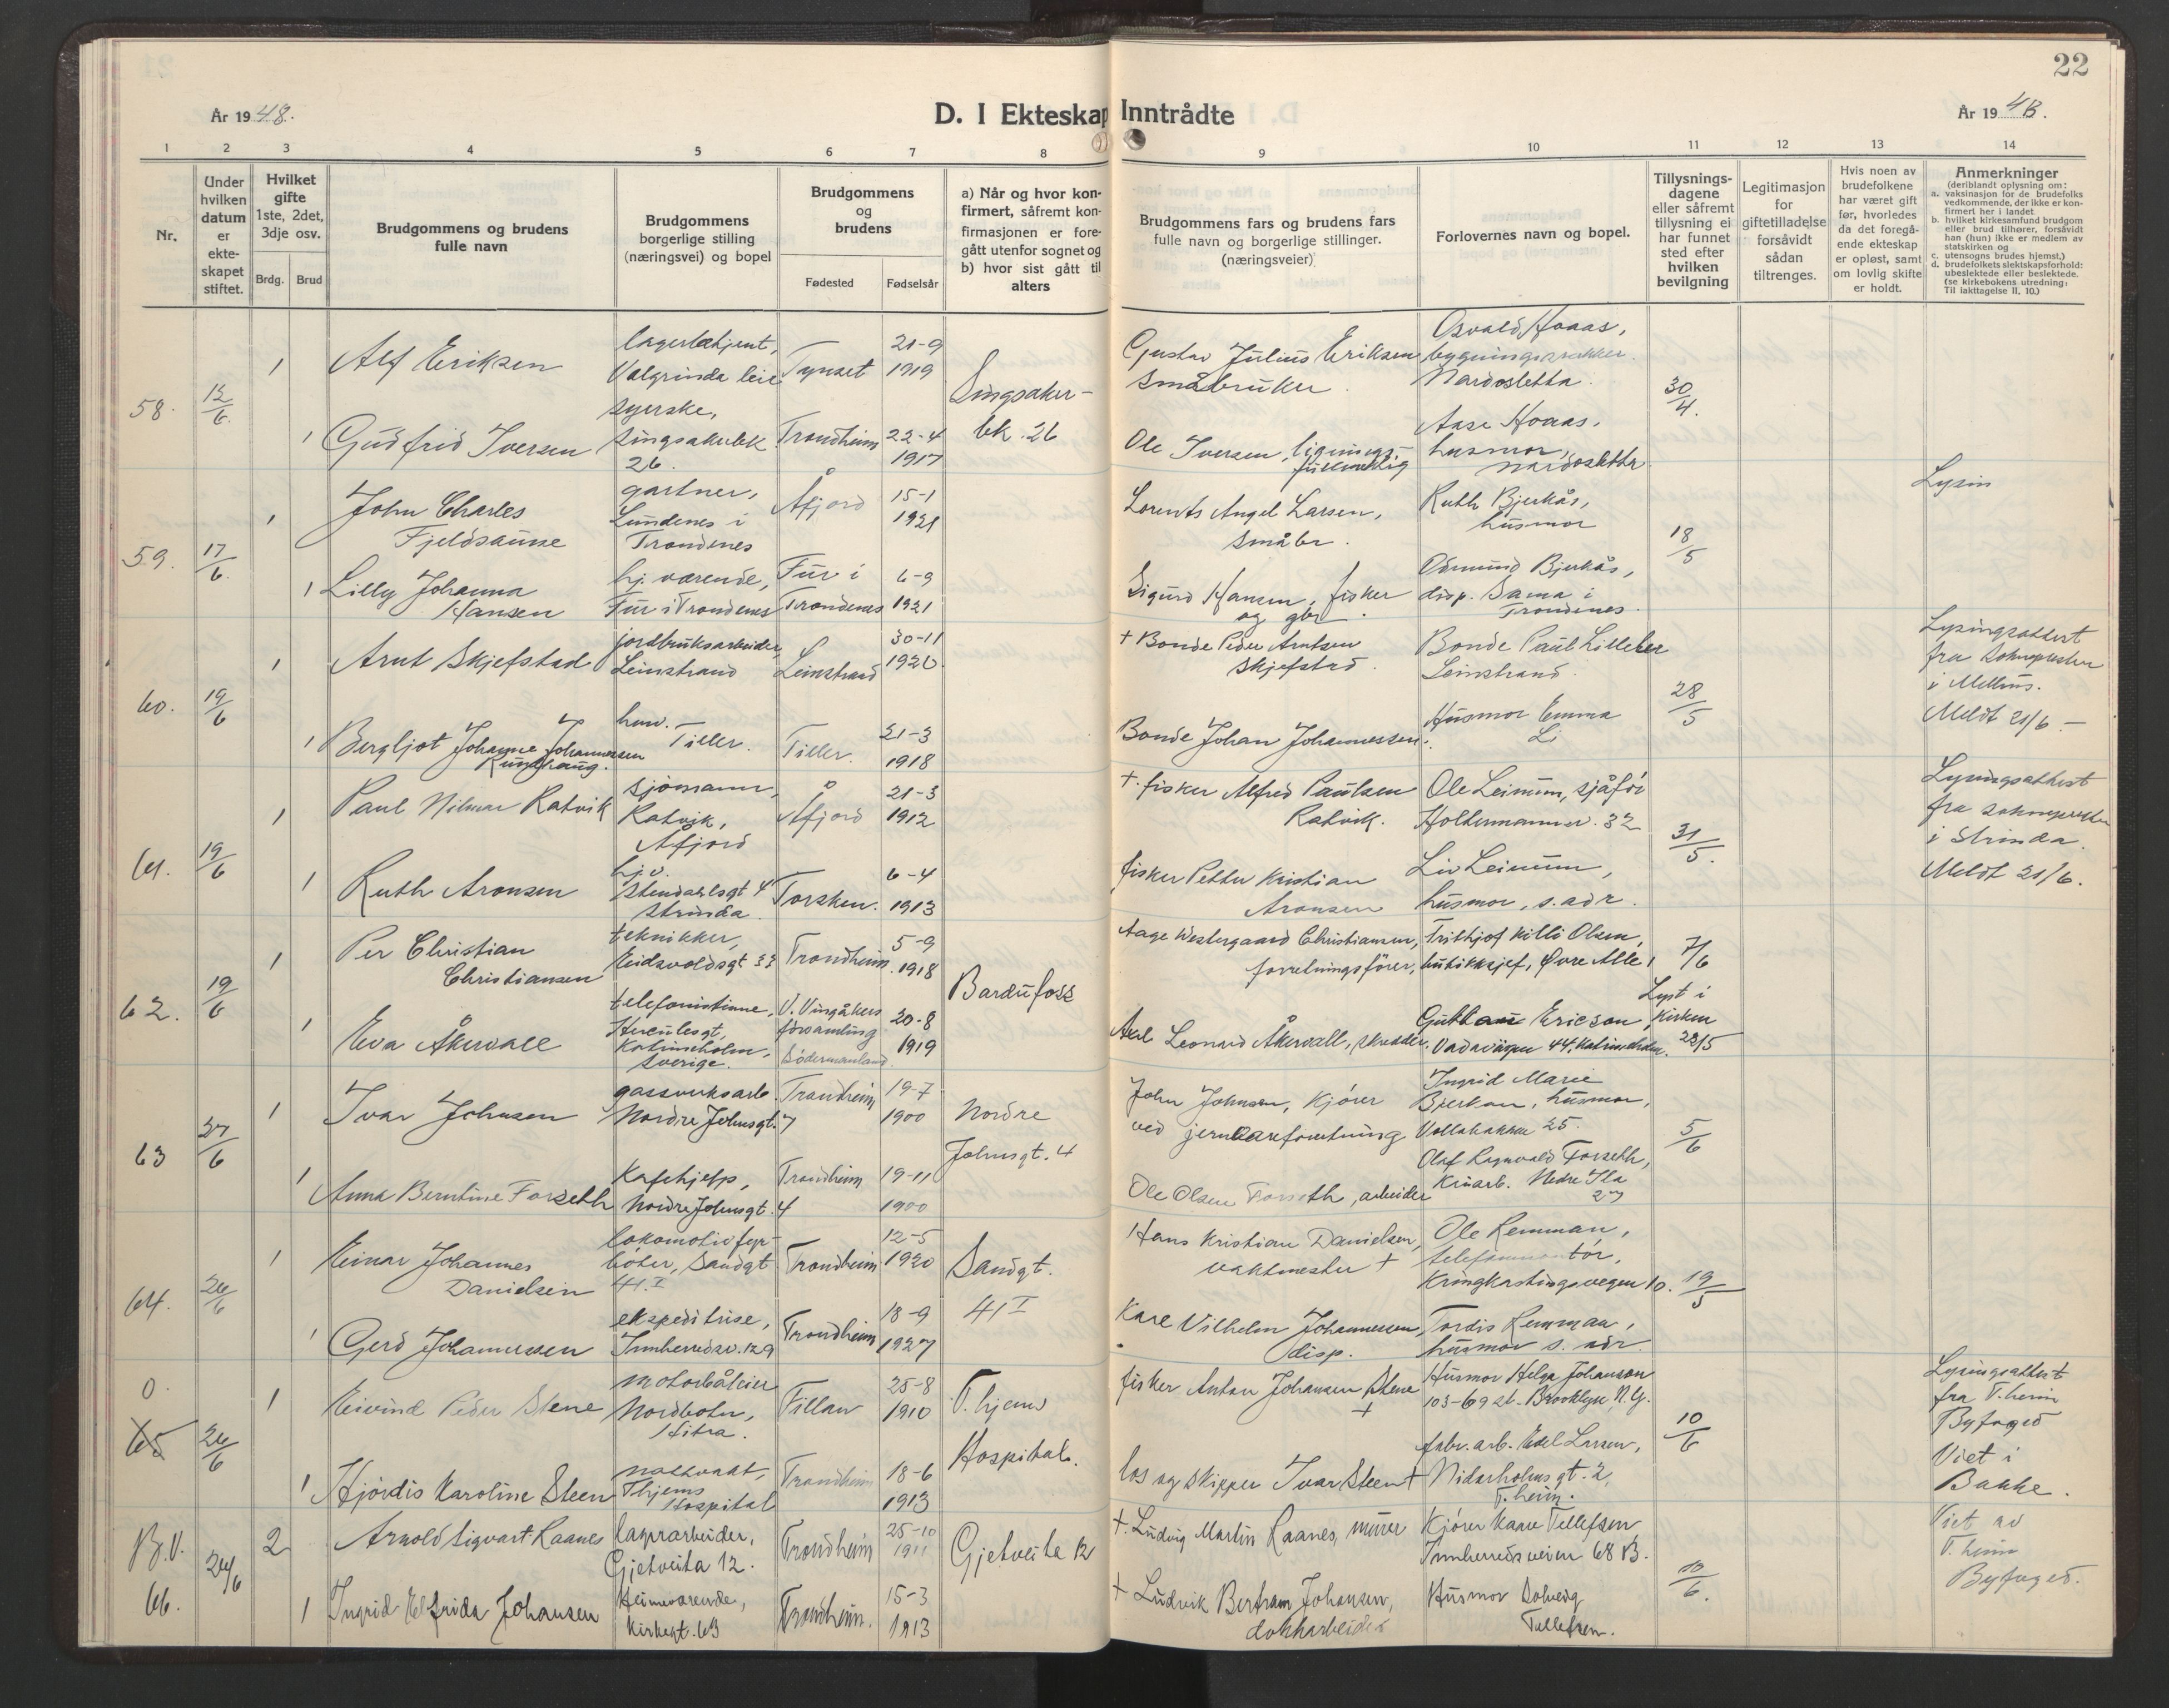 22
År 1948.
D. I Ekteskap Inntrådte
År 1948.
1 2 3 4 5 6 7 8 9 10 11 12 13 14
Nr.
Under hvilken datum er ekte-skapet stiftet.
Hvilket gifte 1ste, 2det, 3dje osv.
Brdg. Brud
Brudgommens og brudens fulle navn
Brudgommens borgerlige stilling (næringsvei) og bopel
Brudgommens og brudens
Fødested Fødselsår
a) Når og hvor kon-firmert, såfremt kon-firmasjonen er fore-gått utenfor sognet og b) hvor sist gått til alters
Brudgommens fars og brudens fars fulle navn og borgerlige stillinger. (næringsveier)
Forlovernes navn og bopel.
Tillysnings-dagene eller såfremt tillysning ei har funnet sted efter hvilken bevilgning
Legitimasjon for giftetilladelse forsåvidt sådan tiltrenges.
Hvis noen av brudefolkene har været gift før, hvorledes da det foregå-ende ekteskap er opløst, samt om lovlig skifte er holdt.
Anmerkninger
(deriblandt oplysning om:
a. vaksinasjon for de brudefolks vedkommende, der ikke er kon-firmert her i landet
b. hvilket kirkesamfund brudgom eller brud tilhører, forsåvidt han (hun) ikke er medlem av statskirken og
c. utensogns brudes hjemst.)
d. brudefolkets slektskapsforhold: ubeslektede eller beslektede.
(se kirkebokens utredning: Til iakttagelse II. 10.)
58. 12/6.
1 Alf Eriksen
lagerbetjent, Valgrinda leir
Tynset 21-9 1919
Singsaker-bk. 26
Gustav Julius Eriksen småbruker.
Osvald Hoaas, Nardosletta.
30/4.
1 Gudfrid Iversen
syerske, Singsakerbk 26.
Trondheim 22-4 1917
Ole Iversen, ligningsfullmektig
Aase Hoaas, husmor, Nardosletta
59. 17/6.
1 John Charles Fjeldsaune
gartner, Lundenes i Trondenes
Åfjord 15-1 1921
Lorents Angel Larsen, småbr.
Ruth Bjerkås, husmor
18/5
1 Lilly Johanna Hansen
hj. værende, Fur i Trondenes
Fur i Trondenes 6-9 1921
Sigurd Hansen, fisker og gbr.
Odmund Bjerkås, disp. Sama i Trondenes.
60. 19/6
1 Arnt Skjefstad
jordbruksarbeider, Leinstrand
Leinstrand 30-11 1920
+ Bonde Peder Arntsen Skjefstad.
Bonde Paul Lilleber Leinstrand.
28/5
Lysingsattest fra Soknepresten i Melhus. Meldt 21/6 –
1 Bergljot Johanne Johannessen Rundhaug.
hmv. Tiller.
Tiller. 21-3 1918
Bonde Johan Johannessen
Husmor Emma Li
61. 19/6
1 Paul Hilmar Ratvik
sjömann, Ratvik, Åfjord
Åfjord 21-3 1912
+ fisker Alfred Paulsen Ratvik.
Ole Leinum, sjåför 32
31/5.
Lysingsattest fra soknepresten i Strinda. Meldt 21/6.
1 Ruth Aronsen
hj.v. Strinda.
Torsken. 6-4 1913
fisker Petter Kristian Aronsen
Liv Leinum, husmor, s. adr.
62. 19/6
1 Per Christian Christiansen
teknikker, Eidsvoldsgt 33
Trondheim. 5-9 1918
Bardufoss
Aage Westergaard Christiansen, forretningsförer,
Frithjof Killi Olsen, butikksjef, Øvre Alle 1
7/6
1 Eva Åkervall
telefonistinne, Herculesgt, Katrineholm, Sverige.
V. Vingåkers församling Södermanland. 20-8 1919
Axel Leonard Åkervall, skredder,
Ericson, 44, Katrineholm.
Lyst i kirken 23/5
63 27/6
1 Ivar Johnsen
gassverksarb. Nordre Johnsgt. 7
Trondheim 19-7 1900
Nordre Johnsgt. 4
John Johnsen, kjører ved jernvareforretning
Ingrid Marie husmor, Vollabakken 25.
5/6
1 Anna Berntine Forseth
Kafehjelp, Nordre Johnsgt. 4
Trondheim 19-11 1900
Ole Olsen Forseth, arbeider
Olaf Ragnvald Forseth, Nedre Ila 27
64. 26/6
1 Einar Johannes Danielsen
lokomotivfyrböter, Sandgt 41.I
Trondheim 12-5 1920
Sandgt. 41 I
Hans Kristian Danielsen, vaktmester +
Ole Remman, telefonmontör, Kringkastingsvegen 10.
19/5
1 Gerd Johannessen
ekspeditrise, Innherredsv. 129
Trondheim 18-9 1927
Kåre Vilhelm Johannessen, disp.
Tordis Remman, husmor s. adr.
0. 65 26/6
1 Eivind Peder Stene
motorbåteier Nordbotn, Hitra.
Fillan 25-8 1910
T.hjems Hospital.
fisker Anton Johansen Stene +
Husmor Helga Johanson 103-69 st. Brooklyn N.Y.
10/6
Lysingsattest fra T.heim Byfoged Viet i Bakke.
1 Hjördis Karoline Steen
nattvakt, T.hjems Hospital
Trondheim 18-6 1913
los og skipper Ivar Steen +
fabr. arb. Edel Larsen, Nidarholmsgt. 2, T.heim.
B.V. 66. 26/6
2 Arnold Sigvart Raanes
lagerarbeider, Gjetveita 12.
Trondheim 25-10 1911
Gjetveita 12
+ Ludvig Martin Raanes, murer
Kjører Kaare Tellefsen Innherredsveien 68 B.
10/6.
Viet av T.heim Byfoged.
1 Ingrid Elfrida Johansen
Heimeværende, Kirkegt. 63
Trondheim. 15-3 1913
+ Ludvik Bertram Johansen, dokkarbeider
Husmor Solveig Tellefsen.